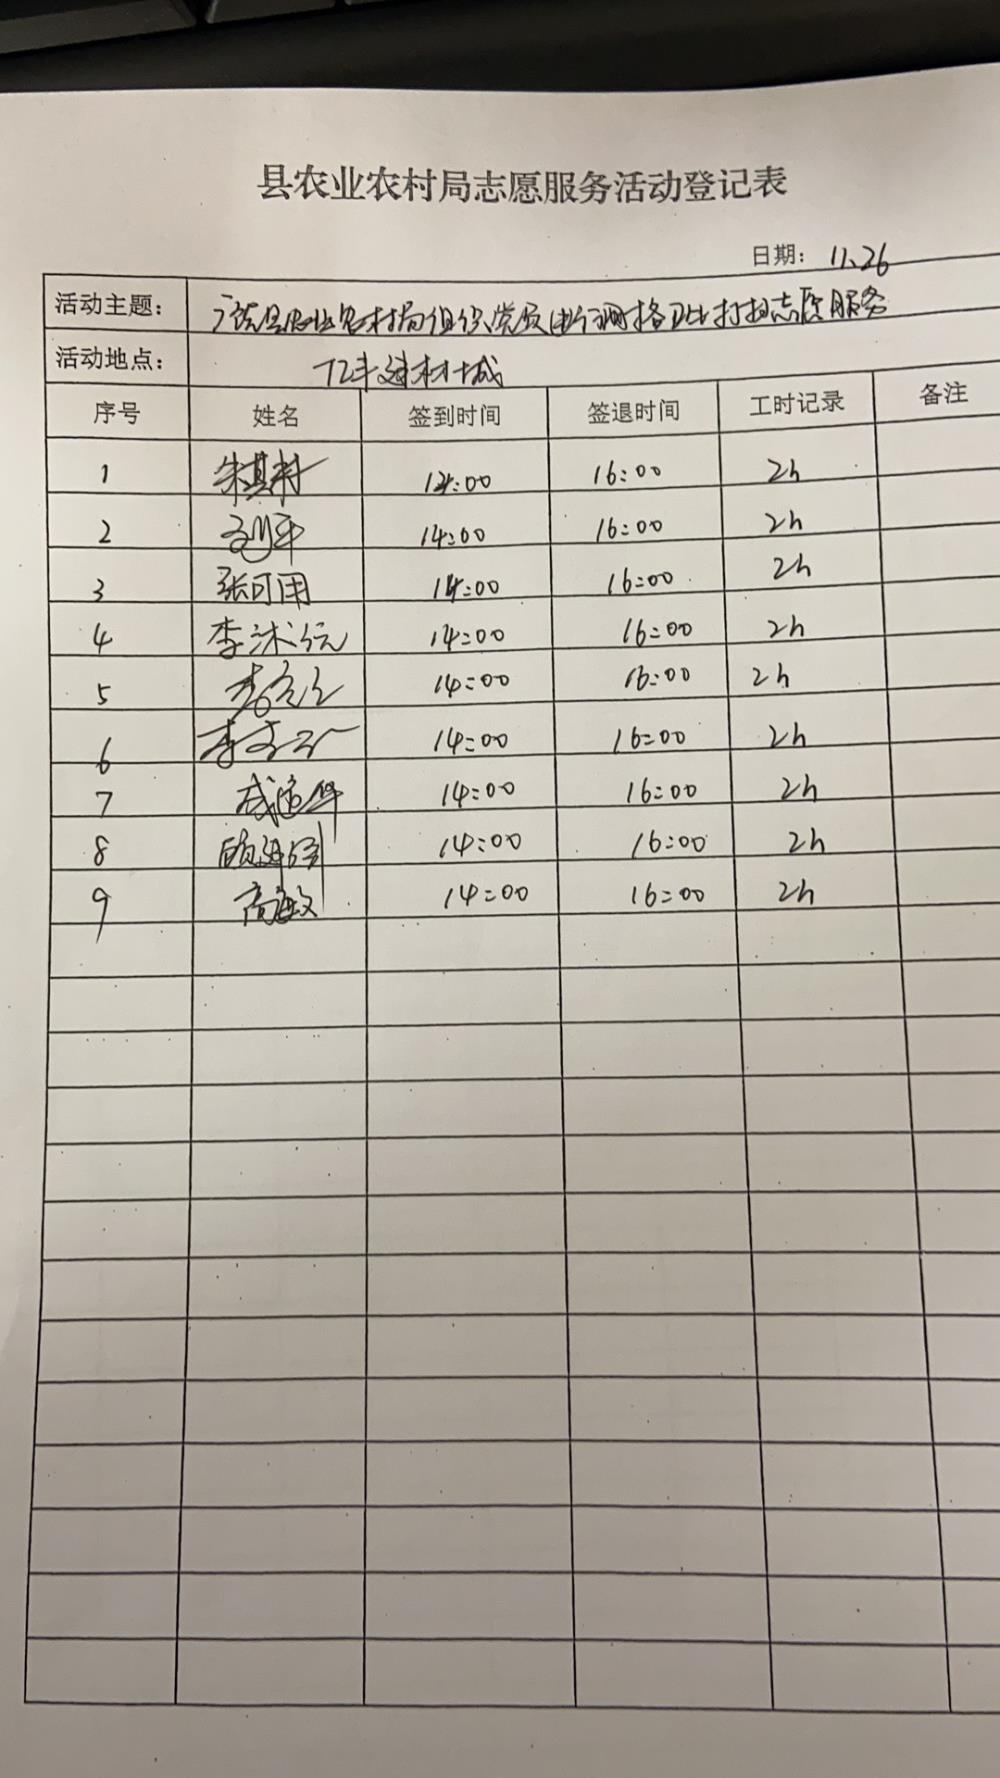 县农业农村局志愿服务活动登记表
日期： 11.26
活动主题： 县农业农村局组织党员 网格卫生打扫志愿服务
活动地点： 亿丰建材城
序号 姓名 签到时间 签退时间 工时记录 备注
1 朱其村 14:00 16:00 2h
2 14:00 16:00 2h
3 张可用 14:00 16:00 2h
4 李沭 14:00 16:00 2h
5 14:00 16:00 2h
6 14:00 16:00 2h
7 14:00 16:00 2h
8 14:00 16:00 2h
9 高敏 14:00 16:00 2h